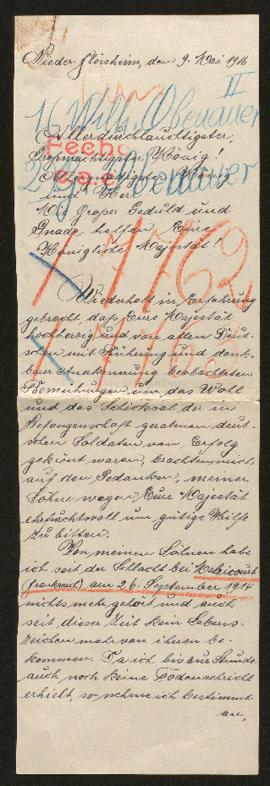 Nieder Flörsheim, den 9. Mai 1916
II
1) Wilh. Obenauer
Allerdurchlauchtigster,
Großmächtigster König!
Allergnädigster König
und Herr
2) Obenauer
Mit großer Geduld und
Gnade helfen, Eure
Königliche Majestät!
Wiederholt in Erfahrung
gebracht, daß Eure Majestät
hochherzig und von allen Deut-
schen mit Rührung und dank-
barer Anerkennung beobachteten
Bemühungen um das Wohl
und das Schicksal der in
Gefangenschaft geratenen deut-
schen Soldaten von Erfolg
gekrönt waren, brachten mich
auf den Gedanken, meiner
Söhne wegen, Eure Majestät
ehrfurchtsvoll um gütige Hilfe
zu bitten.
Von meinen Söhnen habe
ich seit der Schlacht bei
(Frankreich) am 26. September 1914
nichts mehr gehört und auch
seit dieser Zeit kein Lebens-
zeichen mehr von ihnen be-
kommen. Da ich bis zur Stunde
auch noch keine Todesnachricht
erhielt, so nehme ich bestimmt
an,